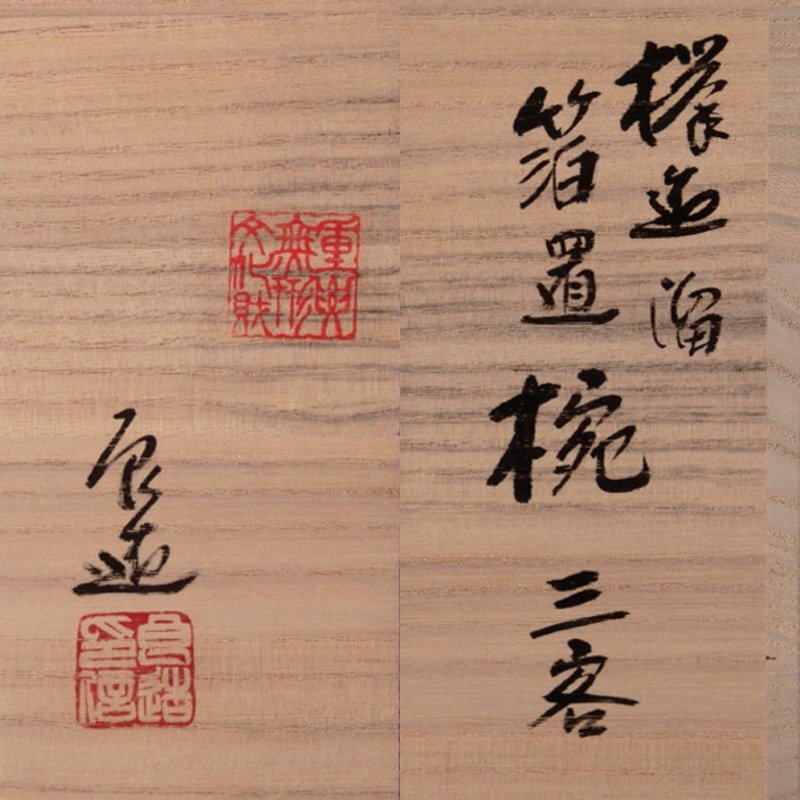 欅造溜
箔置椀 三客
重要
無形
文化財
良造
良造
印信